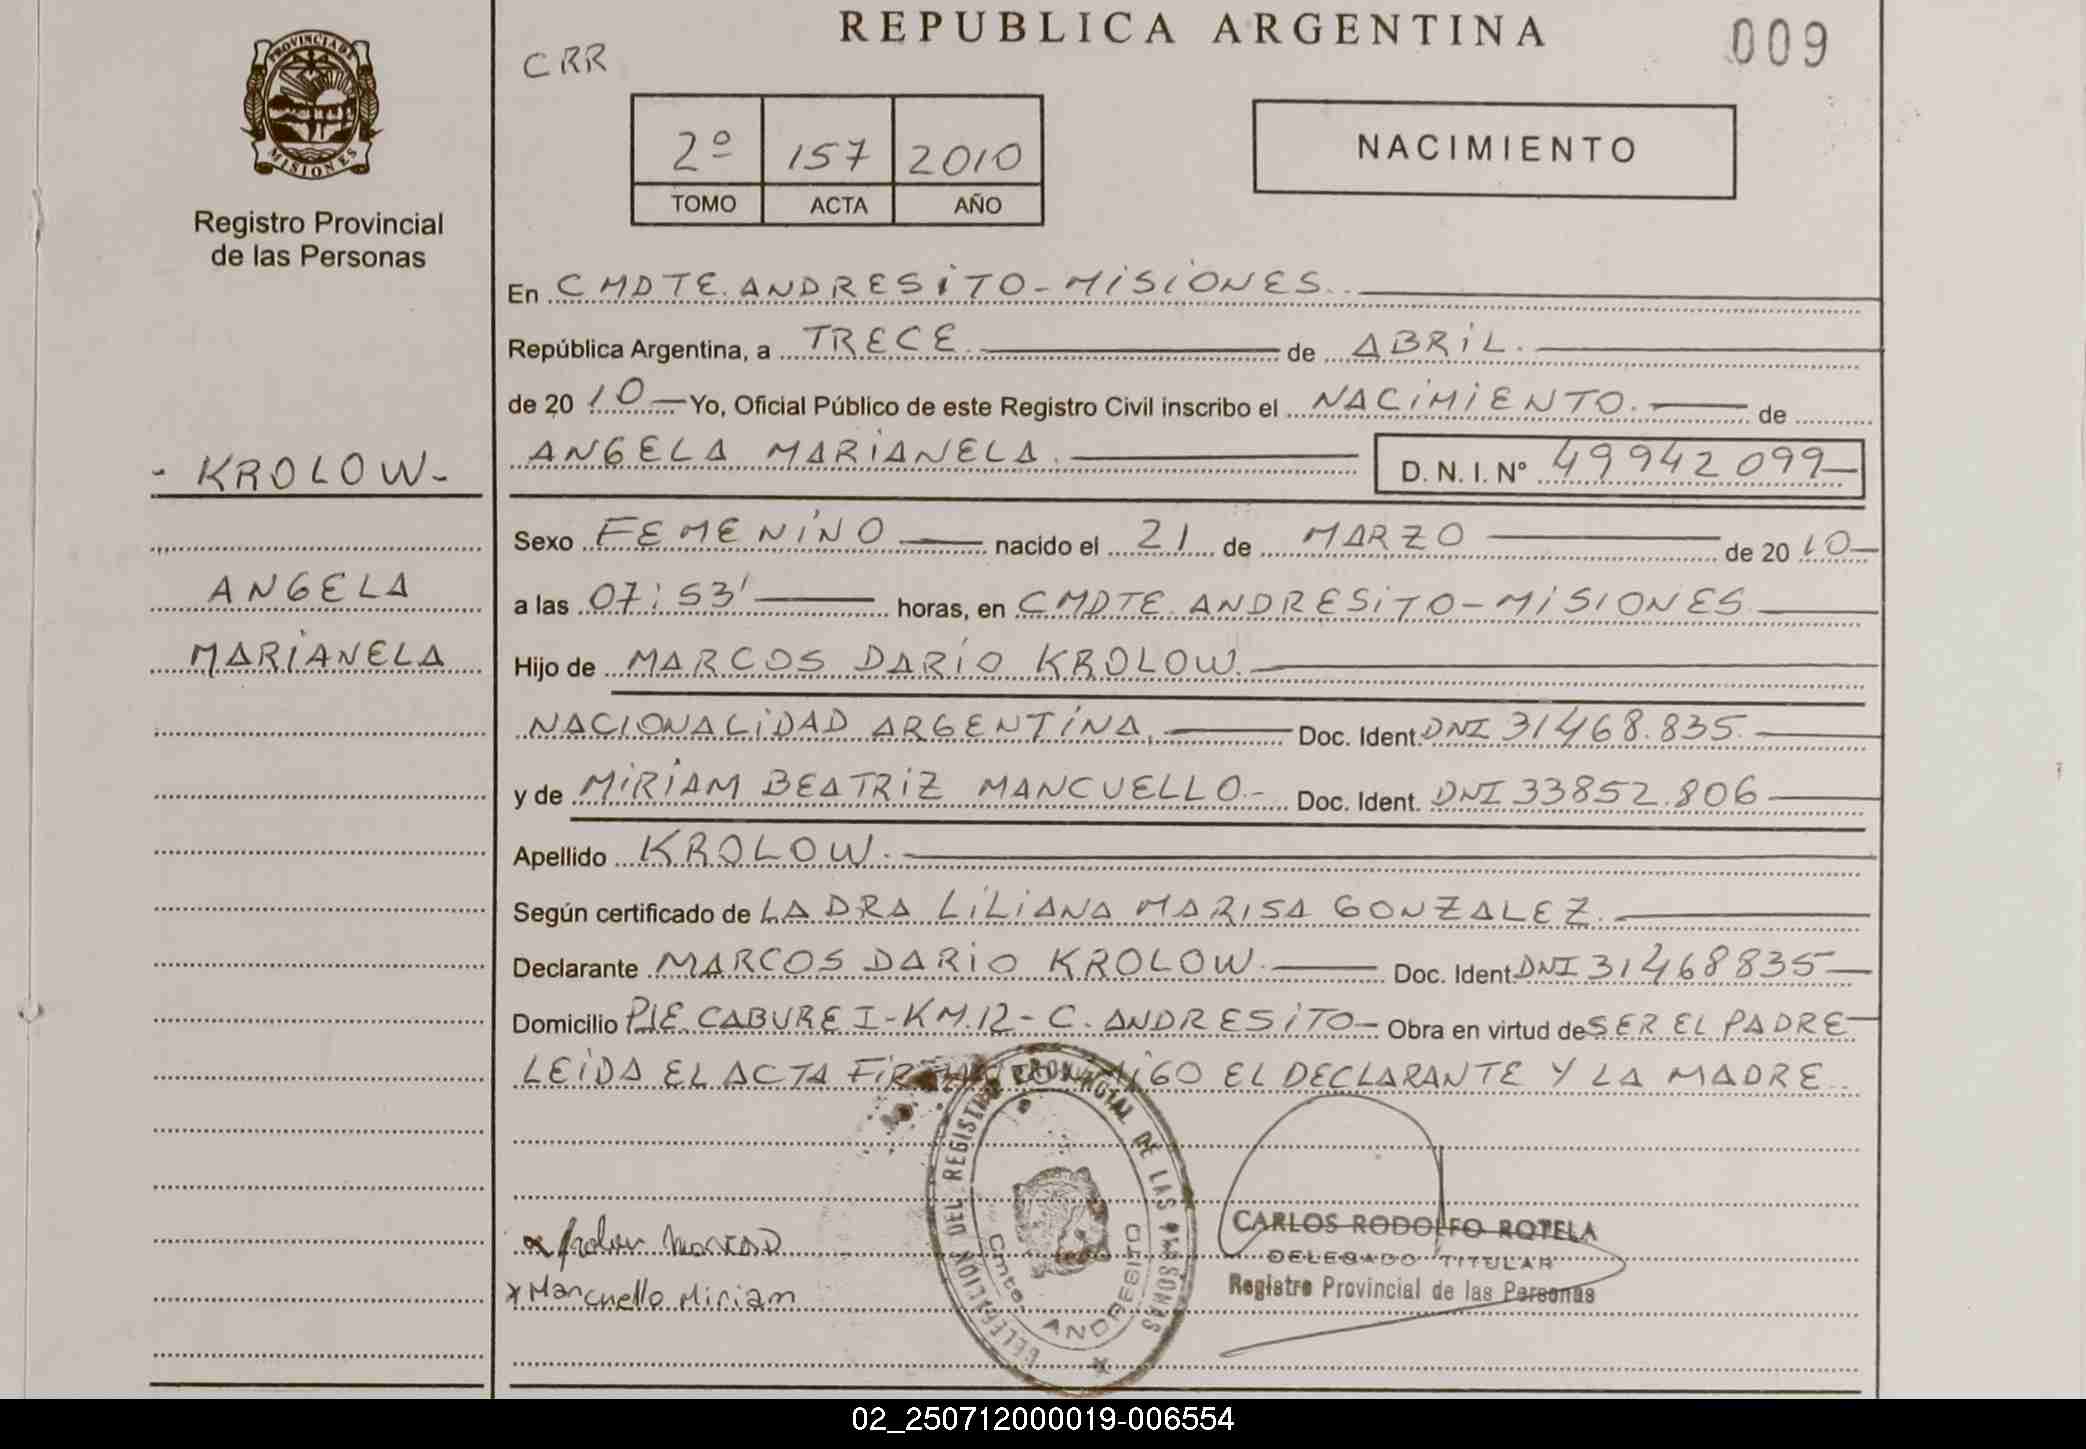 REPUBLICA ARGENTINA
009
CRR
PROVINCIA DE
MISIONES
2º 157 2010
TOMO ACTA AÑO
NACIMIENTO
Registro Provincial
de las Personas
En CMDTE. ANDRESITO - MISIONES.
República Argentina, a TRECE. de ABRIL.
de 20 10 Yo, Oficial Público de este Registro Civil inscribo el NACIMIENTO. de
ANGELA MARIANELA. D. N. I. Nº 49942099
- KROLOW -
ANGELA
MARIANELA
Sexo FEMENINO nacido el 21 de MARZO de 20 10
a las 07:53' horas, en CMDTE. ANDRESITO - MISIONES
Hijo de MARCOS DARIO KROLOW.
NACIONALIDAD ARGENTINA. Doc. Ident. DNI 31468.835.
y de MIRIAM BEATRIZ MANCUELLO.- Doc. Ident. DNI 33852.806
Apellido KROLOW.
Según certificado de LA DRA LILIANA MARISA GONZALEZ.
Declarante MARCOS DARIO KROLOW. Doc. Ident. DNI 31468835
Domicilio PJE CABURE I - KM.12 - C. ANDRESITO - Obra en virtud de SER EL PADRE
LEIDA EL ACTA EL DECLARANTE Y LA MADRE.
DELEGACION DEL REGISTRO PROVINCIAL DE LAS PERSONAS
Cmte. ANDRESITO
CARLOS RODOLFO ROTELA
DELEGADO TITULAR
Registro Provincial de las Personas
x Mancuello Miriam
02_250712000019-006554